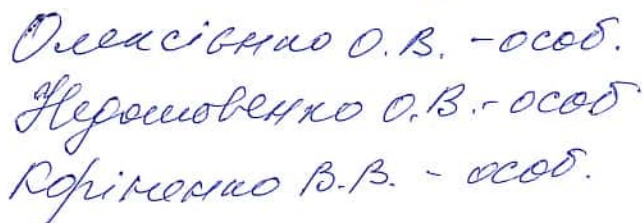 Олексієнко О.В. - особ.
Недомовенко О.В. - особ
Коріненко В.В. - особ.